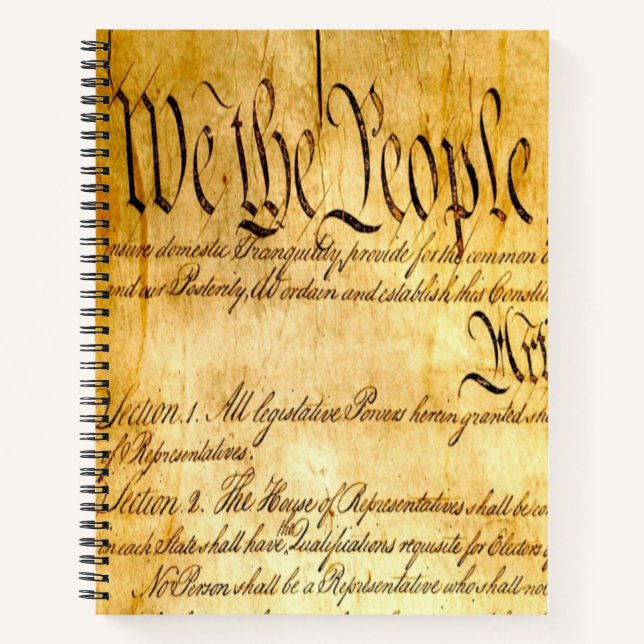 We the People
insure domestic Tranquility, provide for the common
and our Posterity, do ordain and establish this Constit
Art
Section. 1. All legislative Powers herein granted sha
of Representatives.
Section. 2. The House of Representatives shall be co
in each State shall have the Qualifications requisite for Electors o
No Person shall be a Representative who shall not